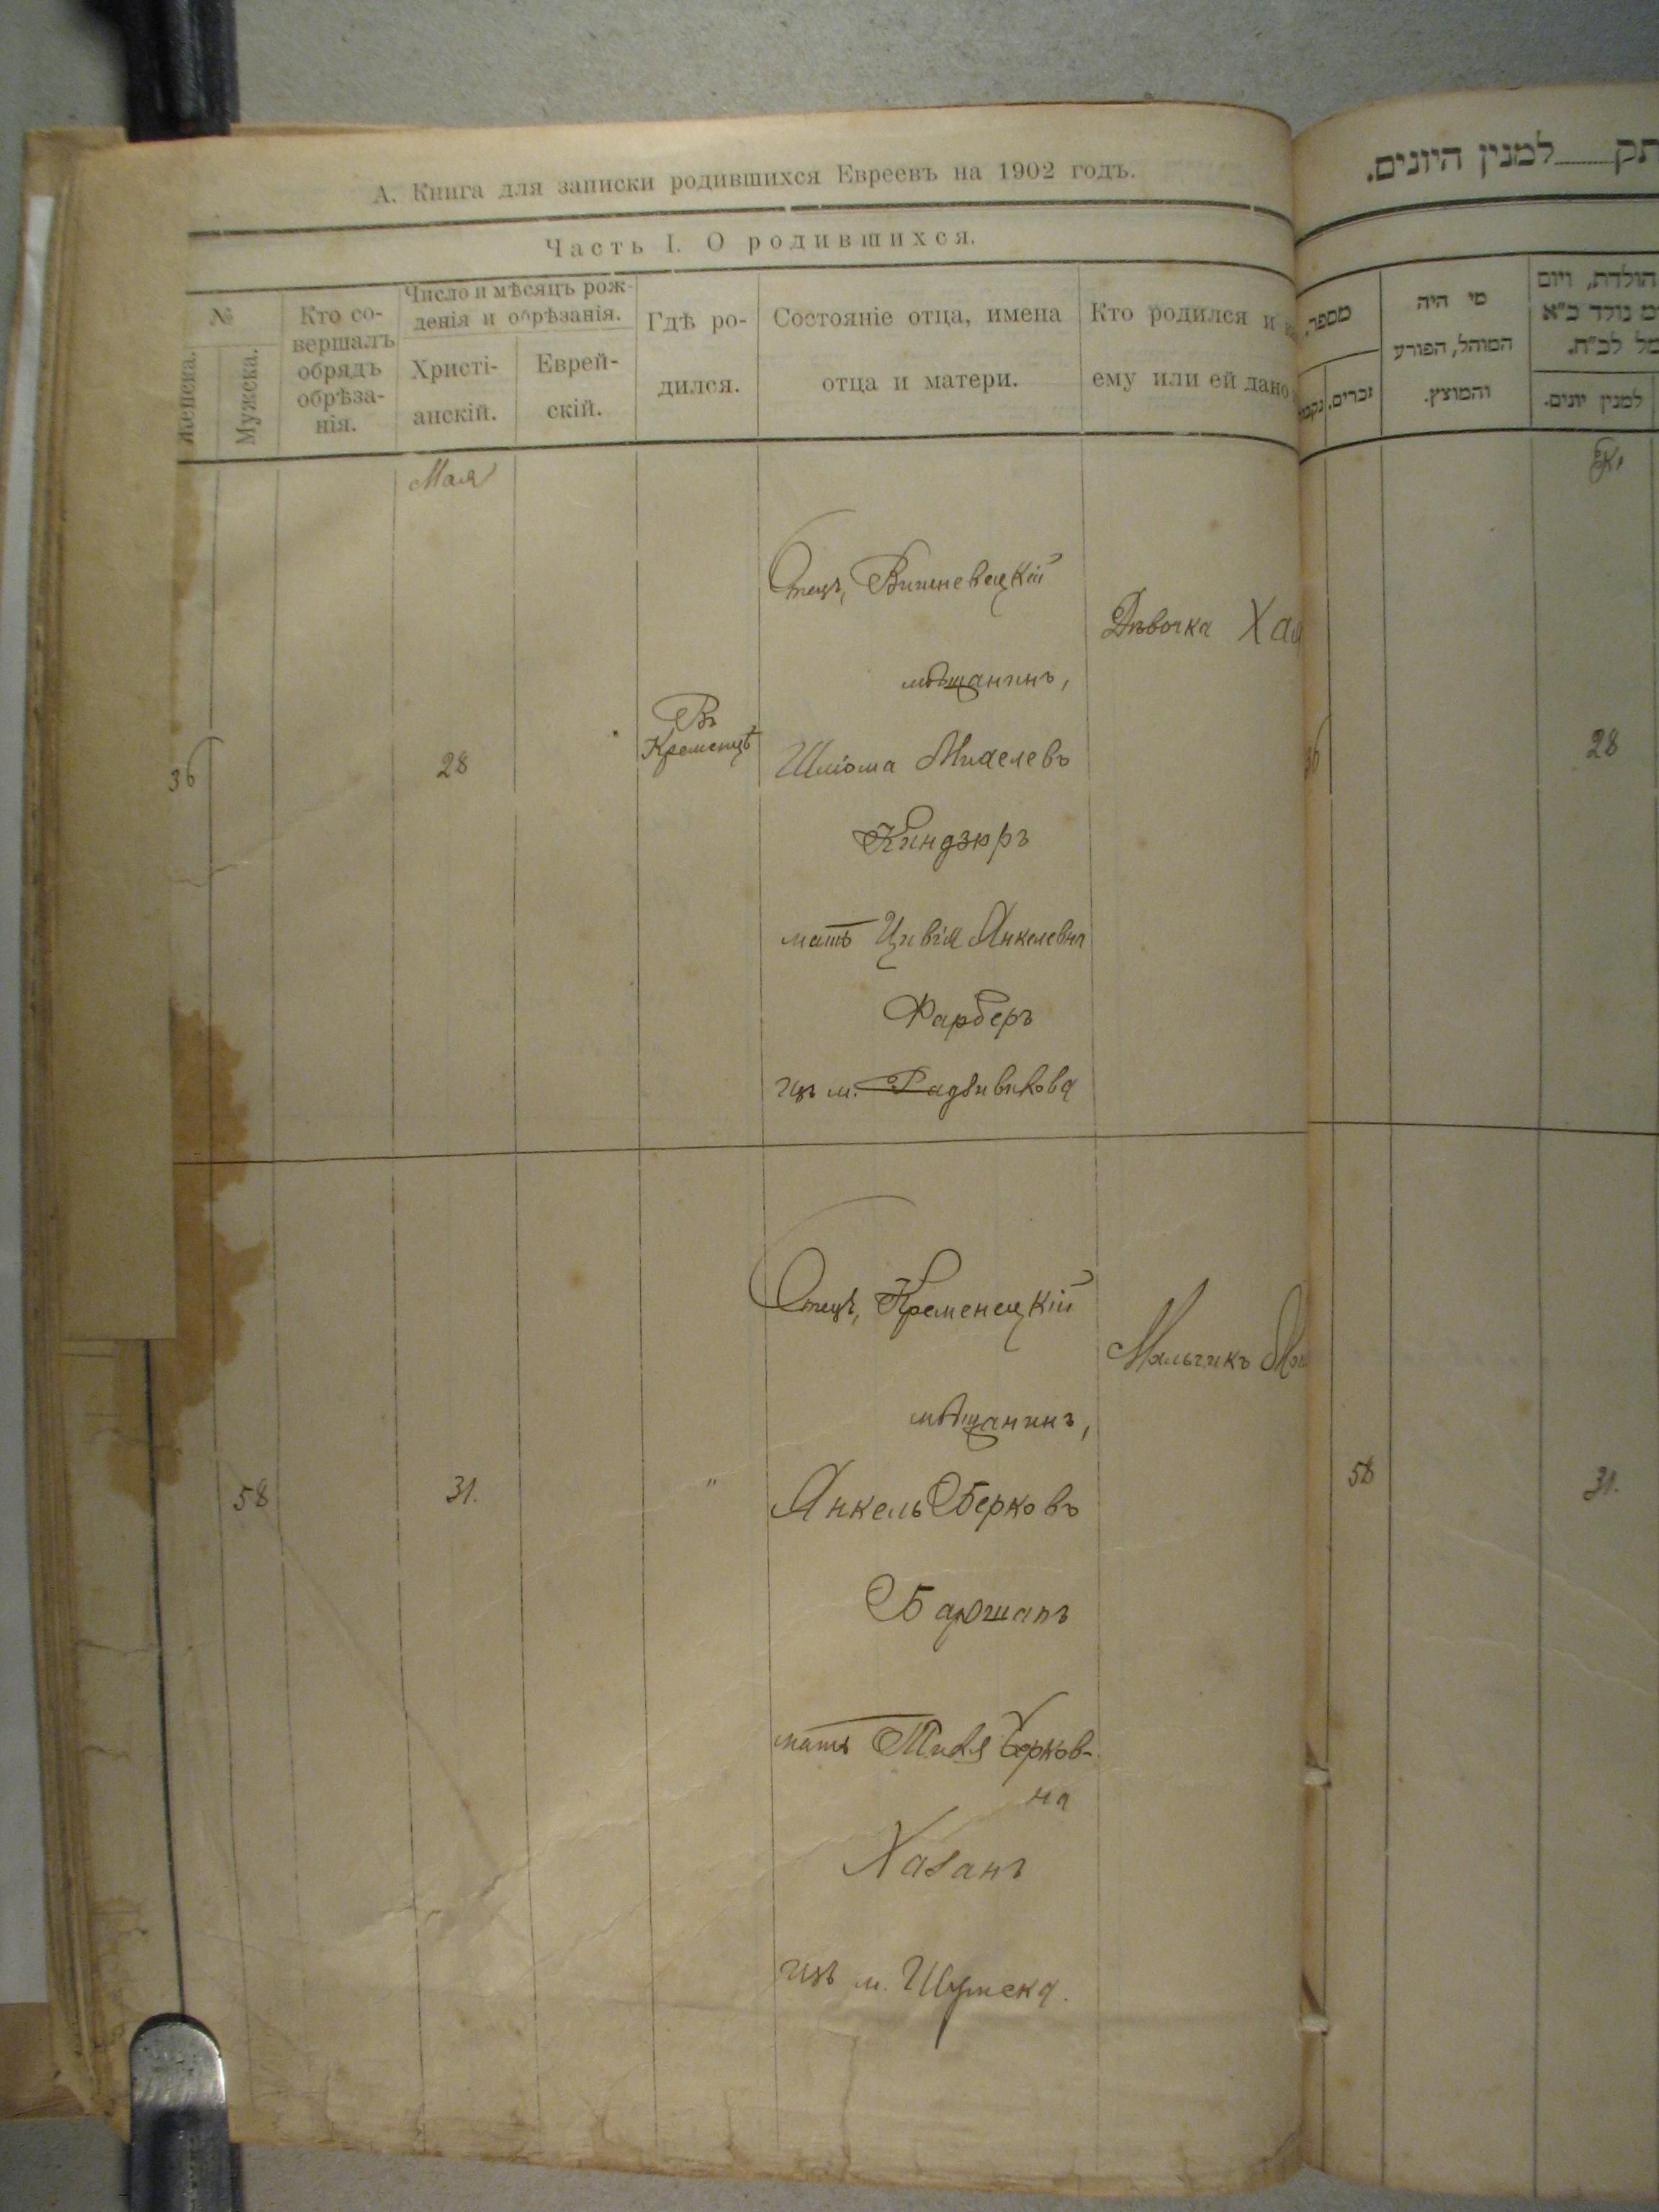 А. Книга для записки родившихся Евреевъ на 1902 годъ.
Часть I. О родившихся.
№
Женска.
Мужска.
Кто со-
вершалъ
обрядъ
обрѣза-
нія.
Число и мѣсяцъ рож-
денія и обрѣзанія.
Христі-
анскій.
Еврей-
скій.
Гдѣ ро-
дился.
Состояніе отца, имена
отца и матери.
Кто родился и
ему или ей дано
Мая
36
28
Въ
Кременцѣ
Отецъ, Вишневецкій
мѣщанинъ,
Шліома
Киндзюръ
мать Цивія Янкелевна
Фарберъ
изъ м. Радзивилова
Дѣвочка
58
31.
"
Отецъ, Кременецкій
мѣщанинъ,
Янкель Берковъ
мать Берков-
на
Хазанъ
изъ м. Шумска.
Мальчикъ
למנין היונים.
מספר
זכרים,
מי היה
המוהל, הפורע
והמוצץ.
הולדת, ויום
למנין יונים.
36
28
58
31.